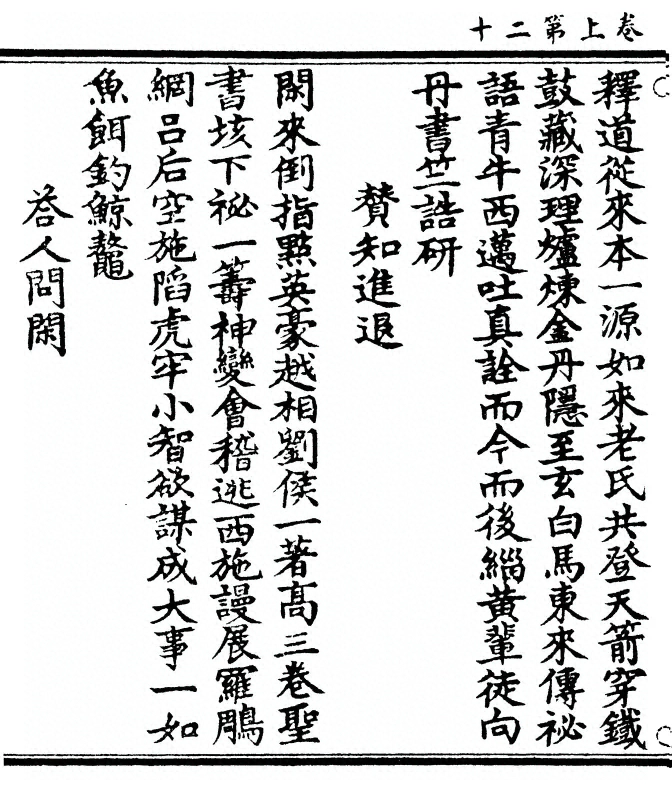 卷上第二十
釋道從來本一源如來老氏共登天箭穿鐵
鼓藏深理爐煉金丹隱至玄白馬東來傳祕
語青牛西邁吐真詮而今而後緇黃輩徒向
丹書竺誥研
贊知進退
閑來倒指點英豪越相劉侯一著高三卷聖
書垓下祕一籌神變會稽逃西施謾展羅鵰
網呂后空施陷虎牢小智欲謀成大事一如
魚餌釣鯨鼇
荅人問閑